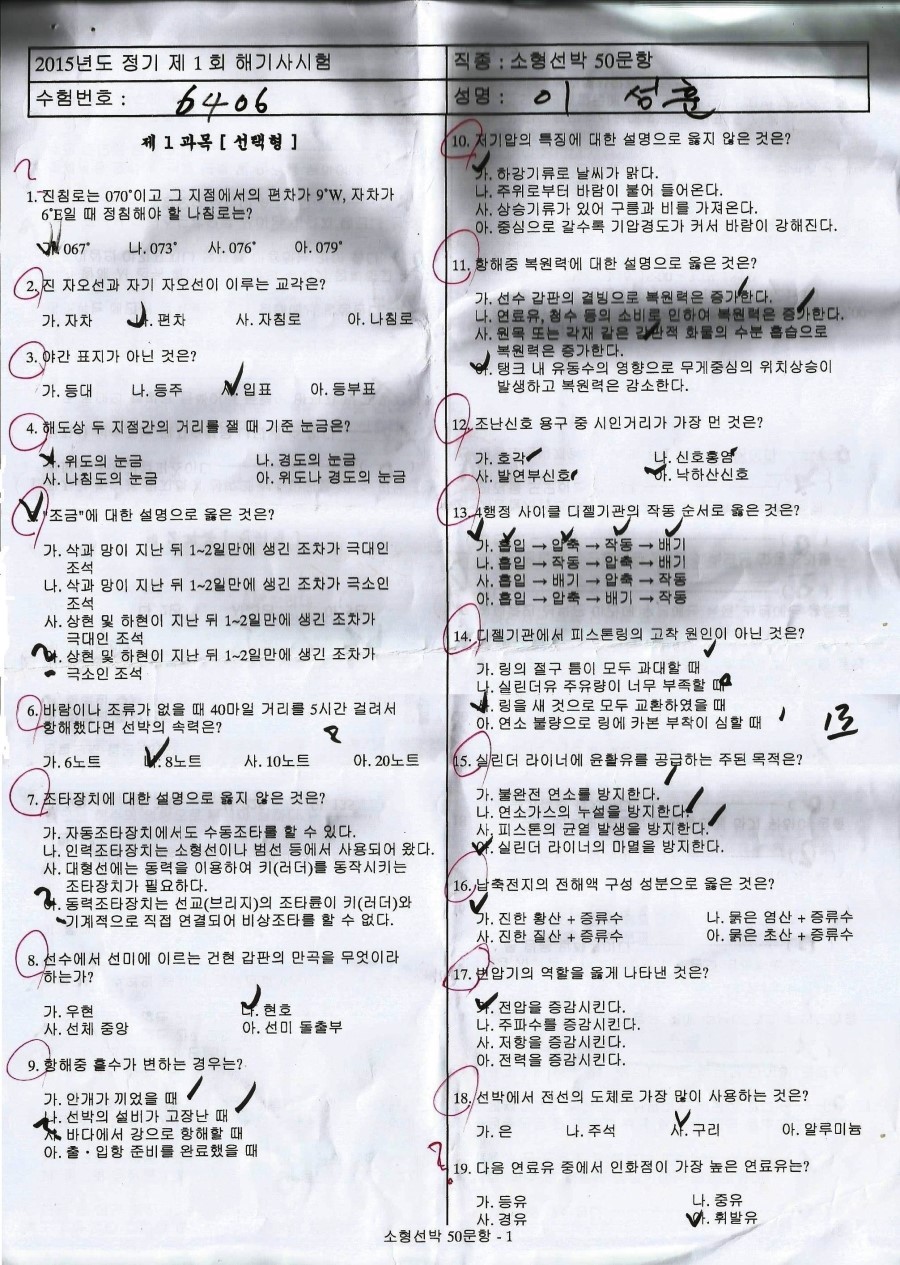 2015년도 정기 제 1 회 해기사시험
직종 : 소형선박 50문항
수험번호 : 6406
성명 : 이 성훈
제 1 과목 [ 선택형 ]
1. 진침로는 070°이고 그 지점에서의 편차가 9°W, 자차가
6°E일 때 정침해야 할 나침로는?
가. 067° 나. 073° 사. 076° 아. 079°
2. 진 자오선과 자기 자오선이 이루는 교각은?
가. 자차 나. 편차 사. 자침로 아. 나침로
3. 야간 표지가 아닌 것은?
가. 등대 나. 등주 사. 입표 아. 등부표
4. 해도상 두 지점간의 거리를 잴 때 기준 눈금은?
가. 위도의 눈금 나. 경도의 눈금
사. 나침도의 눈금 아. 위도나 경도의 눈금
5. "조금"에 대한 설명으로 옳은 것은?
가. 삭과 망이 지난 뒤 1~2일만에 생긴 조차가 극대인
조석
나. 삭과 망이 지난 뒤 1~2일만에 생긴 조차가 극소인
조석
사. 상현 및 하현이 지난 뒤 1~2일만에 생긴 조차가
극대인 조석
아. 상현 및 하현이 지난 뒤 1~2일만에 생긴 조차가
극소인 조석
6. 바람이나 조류가 없을 때 40마일 거리를 5시간 걸려서
항해했다면 선박의 속력은?
8
가. 6노트 나. 8노트 사. 10노트 아. 20노트
7. 조타장치에 대한 설명으로 옳지 않은 것은?
가. 자동조타장치에서도 수동조타를 할 수 있다.
나. 인력조타장치는 소형선이나 범선 등에서 사용되어 왔다.
사. 대형선에는 동력을 이용하여 키(러더)를 동작시키는
조타장치가 필요하다.
아. 동력조타장치는 선교(브리지)의 조타륜이 키(러더)와
기계적으로 직접 연결되어 비상조타를 할 수 없다.
8. 선수에서 선미에 이르는 건현 갑판의 만곡을 무엇이라
하는가?
가. 우현 나. 현호
사. 선체 중앙 아. 선미 돌출부
9. 항해중 흘수가 변하는 경우는?
가. 안개가 끼었을 때
나. 선박의 설비가 고장난 때
사. 바다에서 강으로 항해할 때
아. 출·입항 준비를 완료했을 때
10. 저기압의 특징에 대한 설명으로 옳지 않은 것은?
가. 하강기류로 날씨가 맑다.
나. 주위로부터 바람이 불어 들어온다.
사. 상승기류가 있어 구름과 비를 가져온다.
아. 중심으로 갈수록 기압경도가 커서 바람이 강해진다.
11. 항해중 복원력에 대한 설명으로 옳은 것은?
가. 선수 갑판의 결빙으로 복원력은 증가한다.
나. 연료유, 청수 등의 소비로 인하여 복원력은 증가한다.
사. 원목 또는 각재 같은 갑판적 화물의 수분 흡습으로
복원력은 증가한다.
아. 탱크 내 유동수의 영향으로 무게중심의 위치상승이
발생하고 복원력은 감소한다.
12. 조난신호 용구 중 시인거리가 가장 먼 것은?
가. 호각 나. 신호홍염
사. 발연부신호 아. 낙하산신호
13. 4행정 사이클 디젤기관의 작동 순서로 옳은 것은?
가. 흡입 → 압축 → 작동 → 배기
나. 흡입 → 작동 → 압축 → 배기
사. 흡입 → 배기 → 압축 → 작동
아. 흡입 → 압축 → 배기 → 작동
14. 디젤기관에서 피스톤링의 고착 원인이 아닌 것은?
가. 링의 절구 틈이 모두 과대할 때
나. 실린더유 주유량이 너무 부족할 때
사. 링을 새 것으로 모두 교환하였을 때
아. 연소 불량으로 링에 카본 부착이 심할 때
13
15. 실린더 라이너에 윤활유를 공급하는 주된 목적은?
가. 불완전 연소를 방지한다.
나. 연소가스의 누설을 방지한다.
사. 피스톤의 균열 발생을 방지한다.
아. 실린더 라이너의 마멸을 방지한다.
16. 납축전지의 전해액 구성 성분으로 옳은 것은?
가. 진한 황산 + 증류수 나. 묽은 염산 + 증류수
사. 진한 질산 + 증류수 아. 묽은 초산 + 증류수
17. 변압기의 역할을 옳게 나타낸 것은?
가. 전압을 증감시킨다.
나. 주파수를 증감시킨다.
사. 저항을 증감시킨다.
아. 전력을 증감시킨다.
18. 선박에서 전선의 도체로 가장 많이 사용하는 것은?
가. 은 나. 주석 사. 구리 아. 알루미늄
19. 다음 연료유 중에서 인화점이 가장 높은 연료유는?
가. 등유 나. 중유
사. 경유 아. 휘발유
소형선박 50문항 - 1